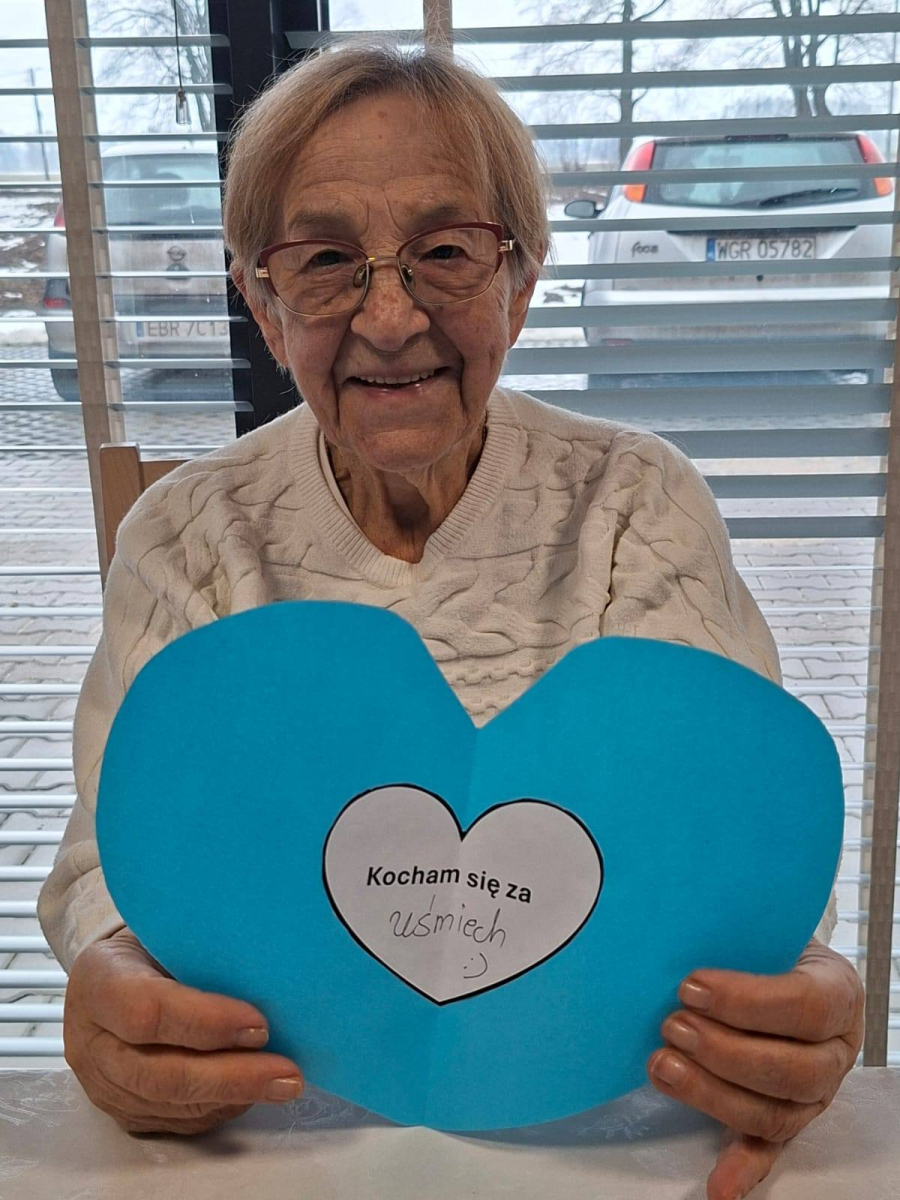 Focus
WGR 05782
EBR 7C13
Kocham się za
uśmiech
:)